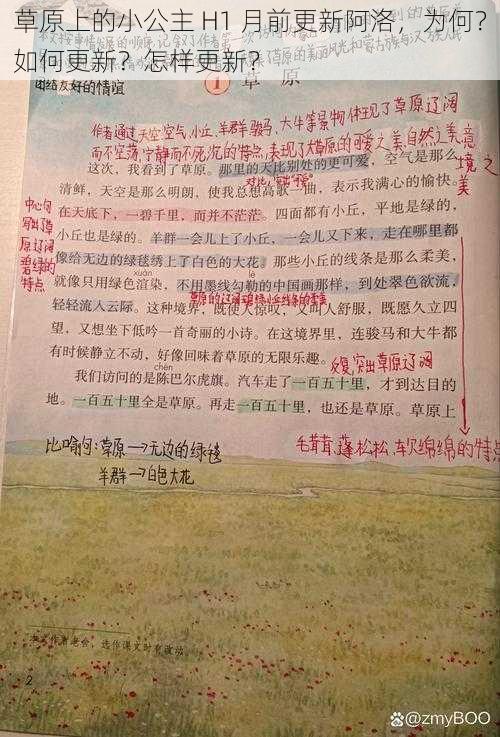 草原上的小公主 H1 月前更新阿洛，为何？
如何更新？怎样更新？
团结友好的情谊
1 草 原
作者通过天空空气,小丘,羊群骏马,大牛等景物体现了草原辽阔
而不空荡,宁静而不死沉的特点,表现了大草原的可爱之美,自然之美,意境之美
这次，我看到了草原。那里的天比别处的更可爱，空气是那么
清鲜，天空是那么明朗，使我总想高歌一曲，表示我满心的愉快。
在天底下，一碧千里，而并不茫茫。四面都有小丘，平地是绿的，
小丘也是绿的。羊群一会儿上了小丘，一会儿又下来，走在哪里都
像给无边的绿毯绣上了白色的大花。那些小丘的线条是那么柔美，
xuàn lè
就像只用绿色渲染，不用墨线勾勒的中国画那样，到处翠色欲流，
轻轻流入云际。这种境界，既使人惊叹，又叫人舒服，既愿久立四
望，又想坐下低吟一首奇丽的小诗。在这境界里，连骏马和大牛都
有时候静立不动，好像回味着草原的无限乐趣。
中心句
写出了草
原辽阔
碧绿的
特点
反复,突出草原辽阔
chén
我们访问的是陈巴尔虎旗。汽车走了一百五十里，才到达目的
地。一百五十里全是草原。再走一百五十里，也还是草原。草原上
毛茸茸,蓬松松,软绵绵的特点
比喻句:草原→无边的绿毯
羊群→白色大花
本文作者老舍，选作课文时有改动。
2
@zmyBOO